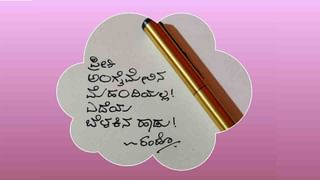 ಪ್ರೀತಿ
ಅಂಗೈಮೇಲಿನ
ಮೆಹಂದಿಯಲ್ಲ!
ಎದೆಯ
ಬೆಳಕಿನ ಹಾಡು!